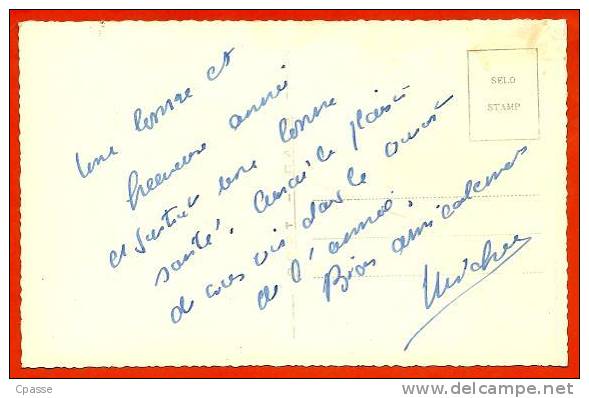 Une bonne et
heureuse année
et surtout une bonne
santé. Aurai le plaisir
de vous voir dans le courant
de l'année.
Bien amicalement
Michel
SELO
STAMP
Cpasse
www.delcampe.net